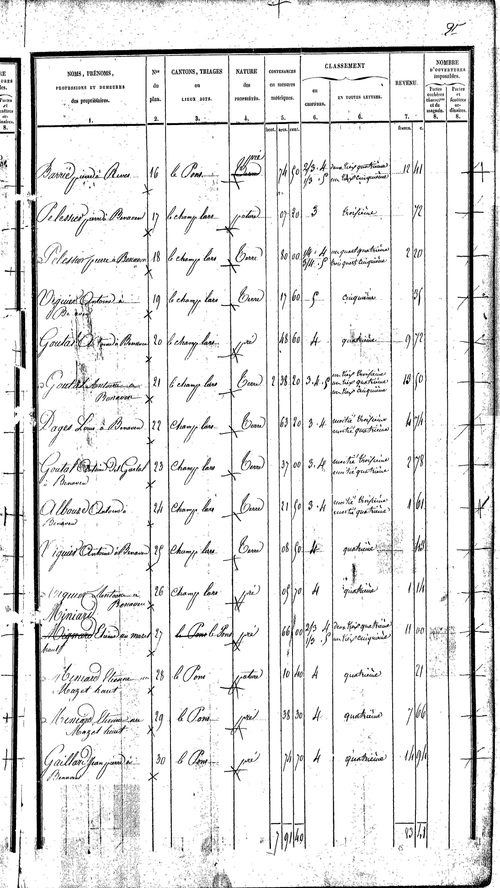 NOMS, PRÉNOMS,
PROFESSIONS ET DEMEURES
des propriétaires.
1.
Nos
du
plan.
2.
CANTONS, TRIAGES
ou
LIEUX DITS.
3.
NATURE
des
PROPRIÉTÉS.
4.
CONTENANCES
en mesures
métriques.
5.
CLASSEMENT
en
CHIFFRES.
6.
EN TOUTES LETTRES.
6.
REVENU.
7.
NOMBRE
D'OUVERTURES
imposables.
Portes
cochères
et de
magasin.
8.
Portes
et
fenêtres
ordinaires.
8.
hect. ares. cent. francs. c.
16 le Pons pré 74 50 2/3 . 4 1/3 . 5 deux tiers quatrième un tiers cinquième 12 41
17 le champ lars pature 07 20 3 troisième 72
18 le champ lars Terre 80 00 1/4 . 4 3/4 . 5 un quart quatrième trois quarts cinquième 2 20
19 le champ lars Terre 17 60 5 cinquième
Goutal à Benaven 20 le champ lars pré 48 60 4 quatrième 9 72
Goutal Antoine à Benaven 21 le champ lars Terre 2 38 20 3.4.5 un tiers troisième un tiers quatrième un tiers cinquième 13 50
Pages Louis à Benaven 22 Champ lars Terre 63 20 3.4 moitié troisième moitié quatrième 4 74
Goutal à Benaven 23 Champ lars Terre 37 00 3.4 moitié troisième moitié quatrième 2 78
Antoine à Benaven 24 Champ lars Terre 21 50 3.4 moitié troisième moitié quatrième 1 61
Viguier Antoine à Benaven 25 Champ lars Terre 08 50 4 quatrième
Viguier Antoine à Benaven 26 Champ lars pré 05 70 4 quatrième 1 14
Miniard
Mignard Etienne au mazet haut 27 le Pons le Pons pré 66 00 2/3 . 4 1/3 . 5 deux tiers quatrième un tiers cinquième 11 00
Meniard Etienne au Mazet haut 28 le Pons pature 10 40 4 quatrième 21
Meniard Etienne au Mazet haut 29 le Pons pré 38 30 4 quatrième 7 66
Gaillard Jean pierre à Benaven 30 le Pons pré 74 70 4 quatrième 14 94
7 91 40